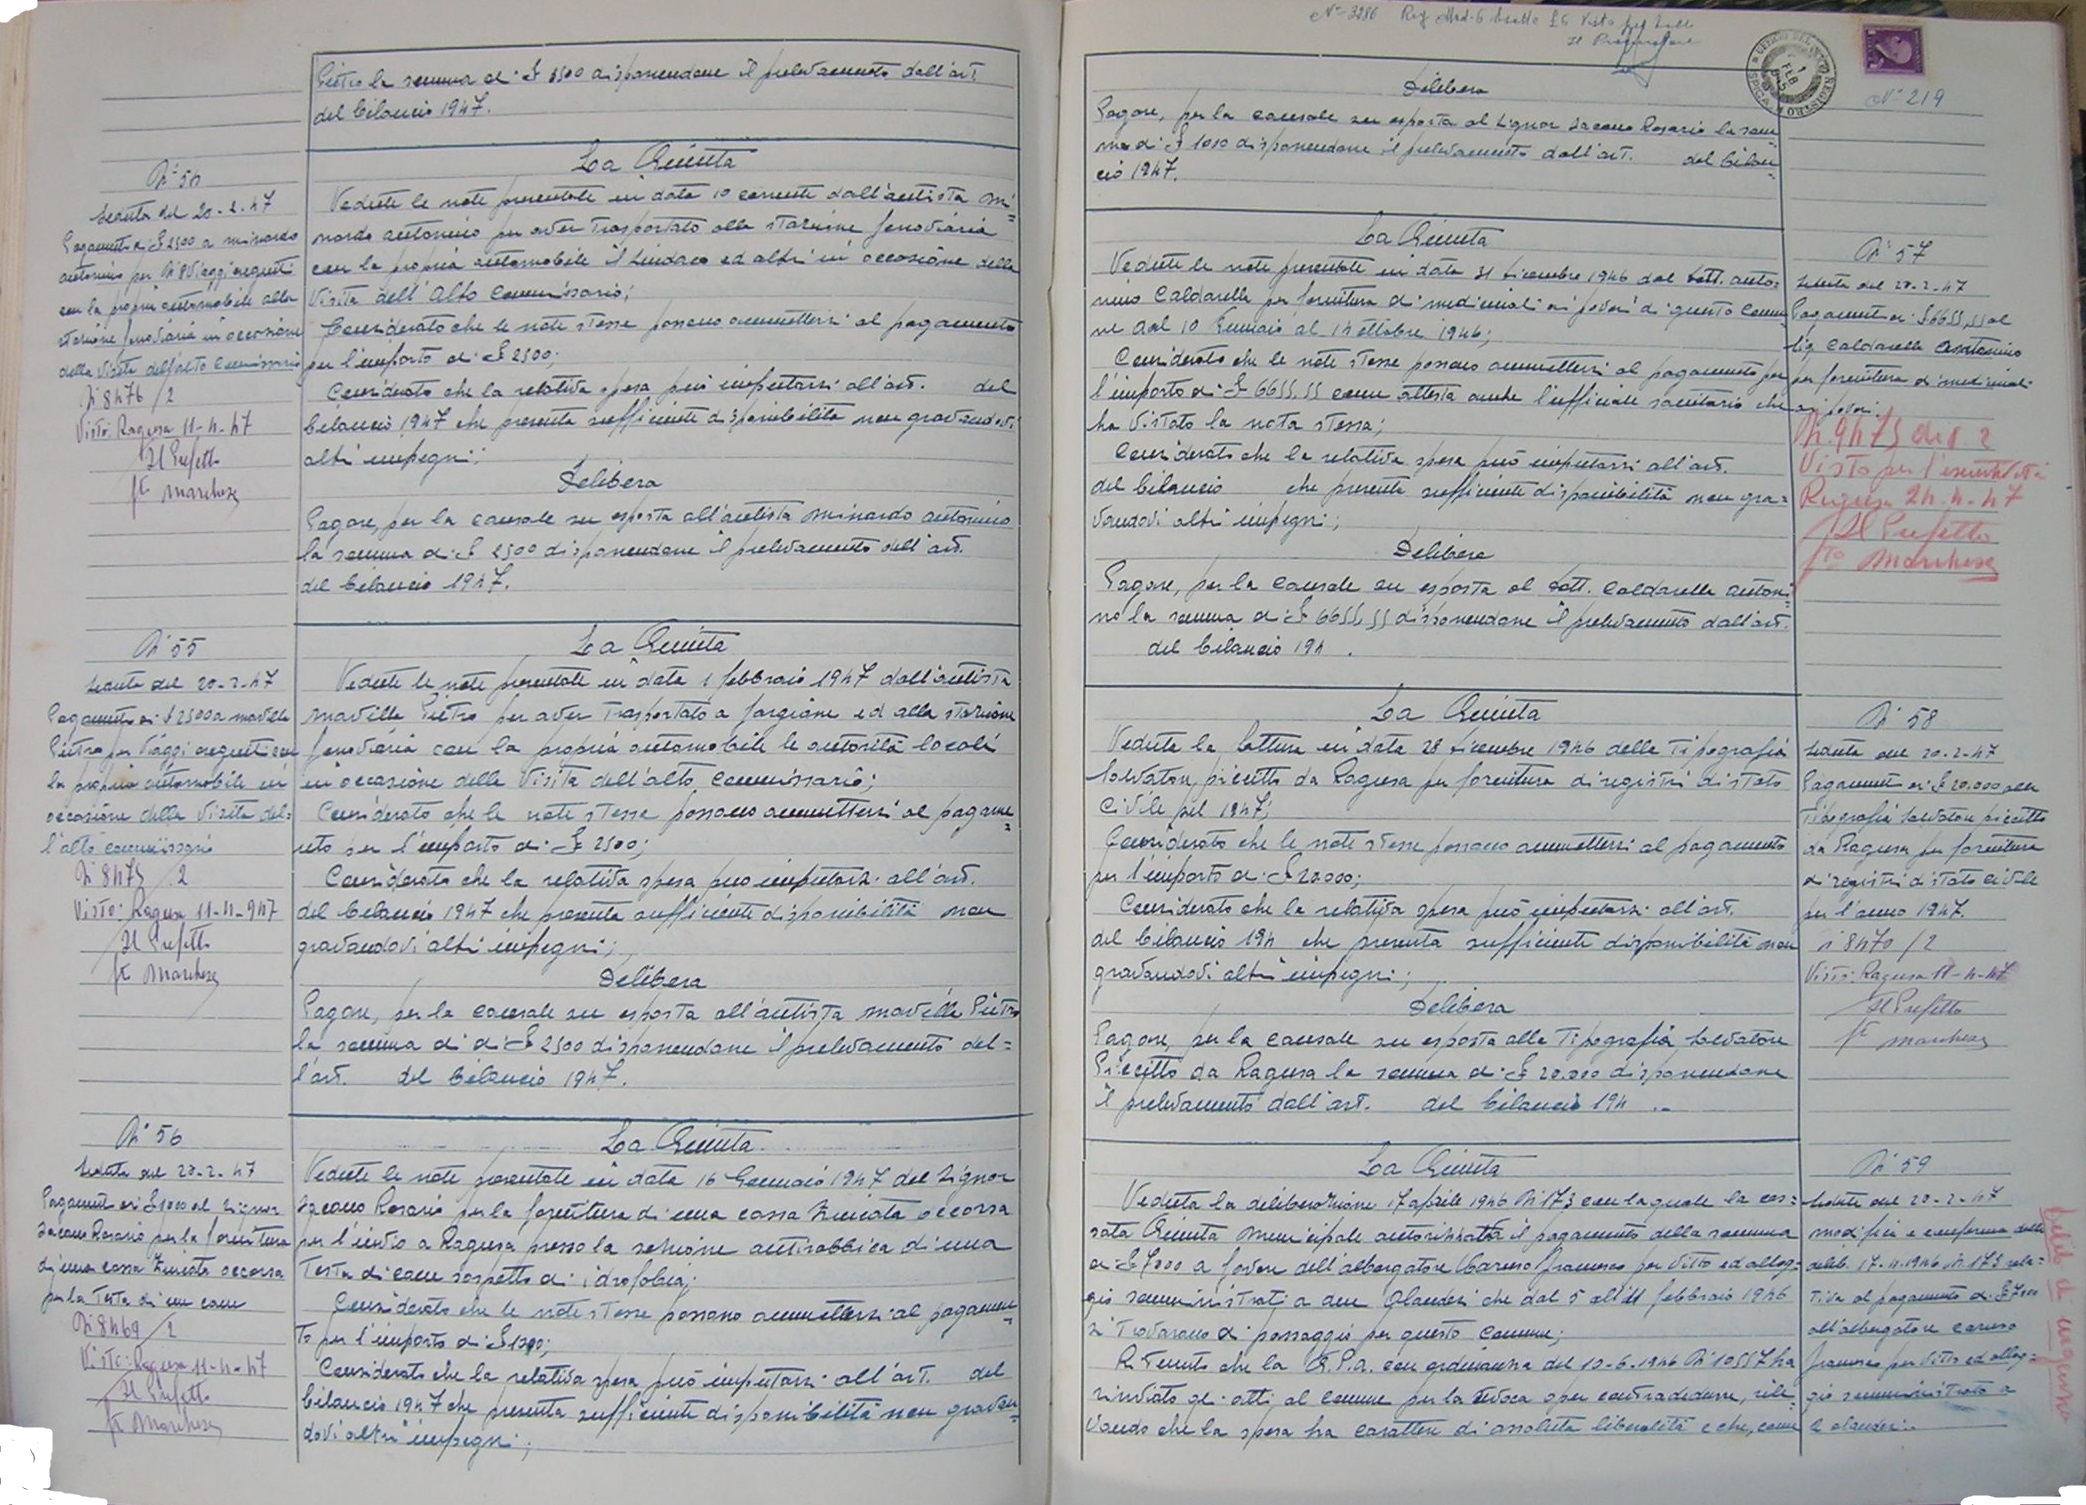 Pietro la somma di £ 3500 disponendone il prelevamento dall'art.
del bilancio 1947.
N° 54
Seduta del 20-2-47
Pagamento £ 2500 a Minardo
Antonino per N° 8 viaggi eseguiti
con la propria automobile alla
stazione ferroviaria in occasione
della visita dell'alto Commissario
N° 8476/2
Visto: Ragusa 11-4-47
Il Prefetto
fto Marchese
La Giunta
Vedute le note presentate in data 10 corrente dall'autista Mi=
nardo Antonino per aver trasportato alla stazione ferroviaria
con la propria automobile il Sindaco ed altri in occasione della
visita dell'Alto Commissario;
Considerato che le note stesse possono ammettersi al pagamento
per l'importo di £ 2500;
Considerato che la relativa spesa può imputarsi all'art. del
bilancio 1947 che presenta sufficiente disponibilità non gravandovi
altri impegni;
Delibera
Pagare, per la causale su esposta all'autista Minardo Antonino
la somma di £ 2500 disponendone il prelevamento dell'art.
del bilancio 1947.
N° 55
Seduta del 20-2-47
Pagamento di £ 2500 a Mavilla
Pietro per viaggi eseguiti con
la propria automobile in
occasione della visita del=
l'alto commissario
N° 8475/2
Visto: Ragusa 11-4-947
Il Prefetto
fto Marchese
La Giunta
Vedute le note presentate in data 1 febbraio 1947 dall'autista
Mavilla Pietro per aver trasportato a Targione ed alla stazione
ferroviaria con la propria automobile le autorità locali
in occasione della visita dell'alto Commissario;
Considerato che le note stesse possono ammettersi al pagame=
nto per l'importo di £ 2500;
Considerato che la relativa spesa può imputarsi all'art.
del bilancio 1947 che presenta sufficiente disponibilità non
gravandovi altri impegni;
Delibera
Pagare, per la causale su esposta all'autista Mavilla Pietro
la somma di di £ 2500 disponendone il prelevamento del=
l'art. del bilancio 1947.
N° 56
Seduta del 20-2-47
Pagamento di £ 1000 al Signor
Iacono Rosario per la fornitura
di una cassa zincata occorsa
per la testa di un cane
N° 8469/2
Visto: Ragusa 11-4-47
Il Prefetto
fto Marchese
La Giunta
Vedute le note presentate in data 16 Gennaio 1947 del Signor
Iacono Rosario per la fornitura di una cassa zincata occorsa
per l'invio a Ragusa presso la sezione antirabbica di una
testa di cane sospetto di idrofobia;
Considerato che le note stesse possono ammettersi al pagamen=
to per l'importo di £ 1000;
Considerato che la relativa spesa può imputarsi all'art. del
bilancio 1947 che presenta sufficiente disponibilità non gravan=
dovi altri impegni;
N° 3286
Visto per bollo
Il Procuratore
UFFICIO DEL REGISTRO
1 FEB
N° 219
Delibera
Pagare, per la causale su esposta al Signor Iacono Rosario la som=
ma di £ 1000 disponendone il prelevamento dall'art. del bilan=
cio 1947.
La Giunta
Vedute le note presentate in data 31 dicembre 1946 dal Dott. Anto=
nino Caldarella per fornitura di medicinali ai poveri di questo Comu=
ne dal 10 Gennaio al 14 ottobre 1946;
Considerato che le note stesse possono ammettersi al pagamento per
l'importo di £ 6655,55 come attesta anche l'ufficiale sanitario che
ha vistato la nota stessa;
Considerato che la relativa spesa può imputarsi all'art.
del bilancio che presenta sufficiente disponibilità non gra=
vandovi altri impegni;
Delibera
Pagare, per la causale su esposta al Dott. Caldarella Antoni=
no la somma di £ 6655,55 disponendone il prelevamento dall'art.
del bilancio 194 .
N° 57
Seduta del 20-2-47
Pagamento di £ 6655,55 al
Sig. Caldarella Antonino
per fornitura di medicinali
ai poveri.
N. 9475 div 2
Visto per l'esecutività
Ragusa 24-4-47
Il Prefetto
fto Marchese
La Giunta
Veduta la fattura in data 28 dicembre 1946 della Tipografia
Salvatore Piccitto da Ragusa per fornitura di registri di stato
civile pel 1947;
Considerato che le note stesse possono ammettersi al pagamento
per l'importo di £ 20.000;
Considerato che la relativa spesa può imputarsi all'art.
del bilancio 194 che presenta sufficiente disponibilità non
gravandovi altri impegni;
Delibera
Pagare, per la causale su esposta alla Tipografia Salvatore
Piccitto da Ragusa la somma di £ 20.000 disponendone
il prelevamento dall'art. del bilancio 194 ..
N° 58
Seduta del 20-2-47
Pagamento di £ 20.000 alla
Tipografia Salvatore Piccitto
da Ragusa per fornitura
di registri di stato civile
per l'anno 1947.
N° 8470/2
Visto: Ragusa 11-4-47
Il Prefetto
fto Marchese
La Giunta
Veduta la deliberazione 17 aprile 1946 N° 173 con la quale la ces=
sata Giunta Municipale autorizzava il pagamento della somma
di £ 7000 a favore dell'albergatore Caruso Francesco per vitto ed allog=
gio somministrati a due Olandesi che dal 5 all'11 febbraio 1946
si trovarono di passaggio per questo Comune;
Ritenuto che la G.P.A. con ordinanza del 10-6-1946 N° 10557 ha
rinviato gli atti al Comune per la revoca oper contradedurre, rile=
vando che la spesa ha carattere di assoluta liberalità e che, come
N° 59
Seduta del 20-2-47
Modifica e conferma della
delib. 17-4-1946, N° 173 rela=
tiva al pagamento di £ 7000
all'albergatore Caruso
Francesco per vitto ed allog=
gio somministrato a
2 olandesi..
Delib. di urgenza